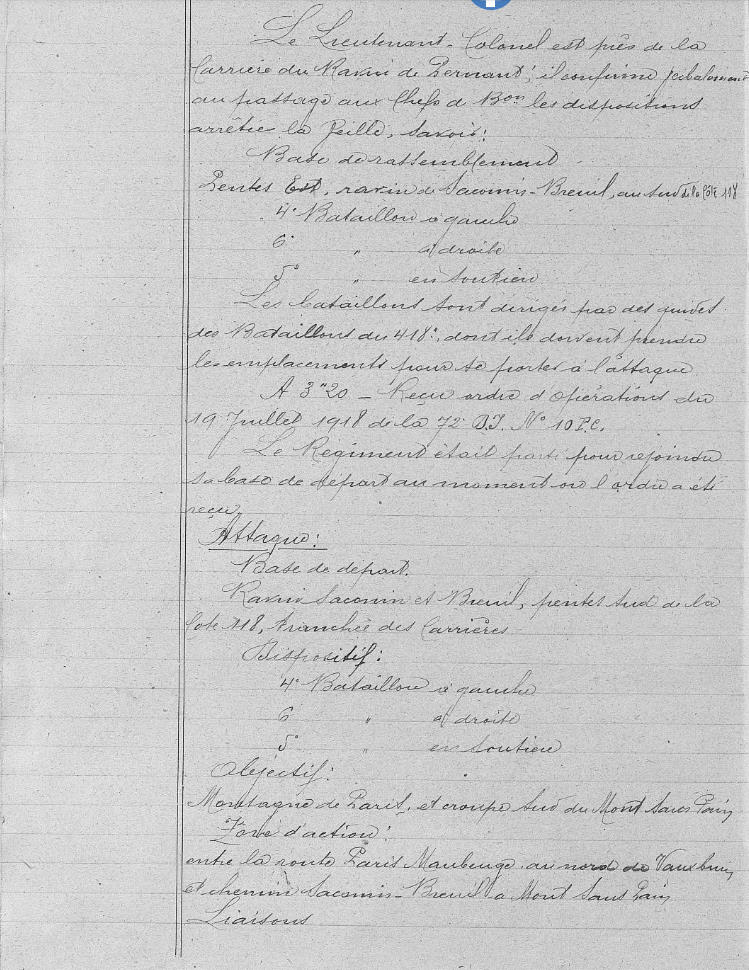 Le Lieutenant-Colonel est près de la
Carrière du Ravin de Pernant; il confirme verbalement
au passage aux Chefs de Bon les dispositions
arrêtées la veille, savoir:
Base de rassemblement
Pentes Est, ravin de Saconin-Breuil, au Sud de la côte 118
4e Bataillon à gauche
6e " à droite
5e " en soutien
Les bataillons sont dirigés par des guides
des Bataillons du 418e, dont ils doivent prendre
les emplacements pour se porter à l'attaque
A 3h20 - Reçu ordre d'opérations du
19 Juillet 1918 de la 72e D.I. No 10 P.C.
Le Régiment était parti pour rejoindre
sa base de départ au moment où l'ordre a été
reçu.
Attaque:
Base de départ.
Ravin Saconin et Breuil, pentes Sud de la
Cote 118, tranchée des Carrières
Dispositif:
4e Bataillon à gauche
6 " à droite
5e " en soutien
Objectif:
Montagne de Paris, et croupe Sud du Mont Sans Pain
Zone d'action:
entre la route Paris Maubeuge au nord de Vauxbuin
et chemin Saconin-Breuil à Mont Sans Pain
Liaisons